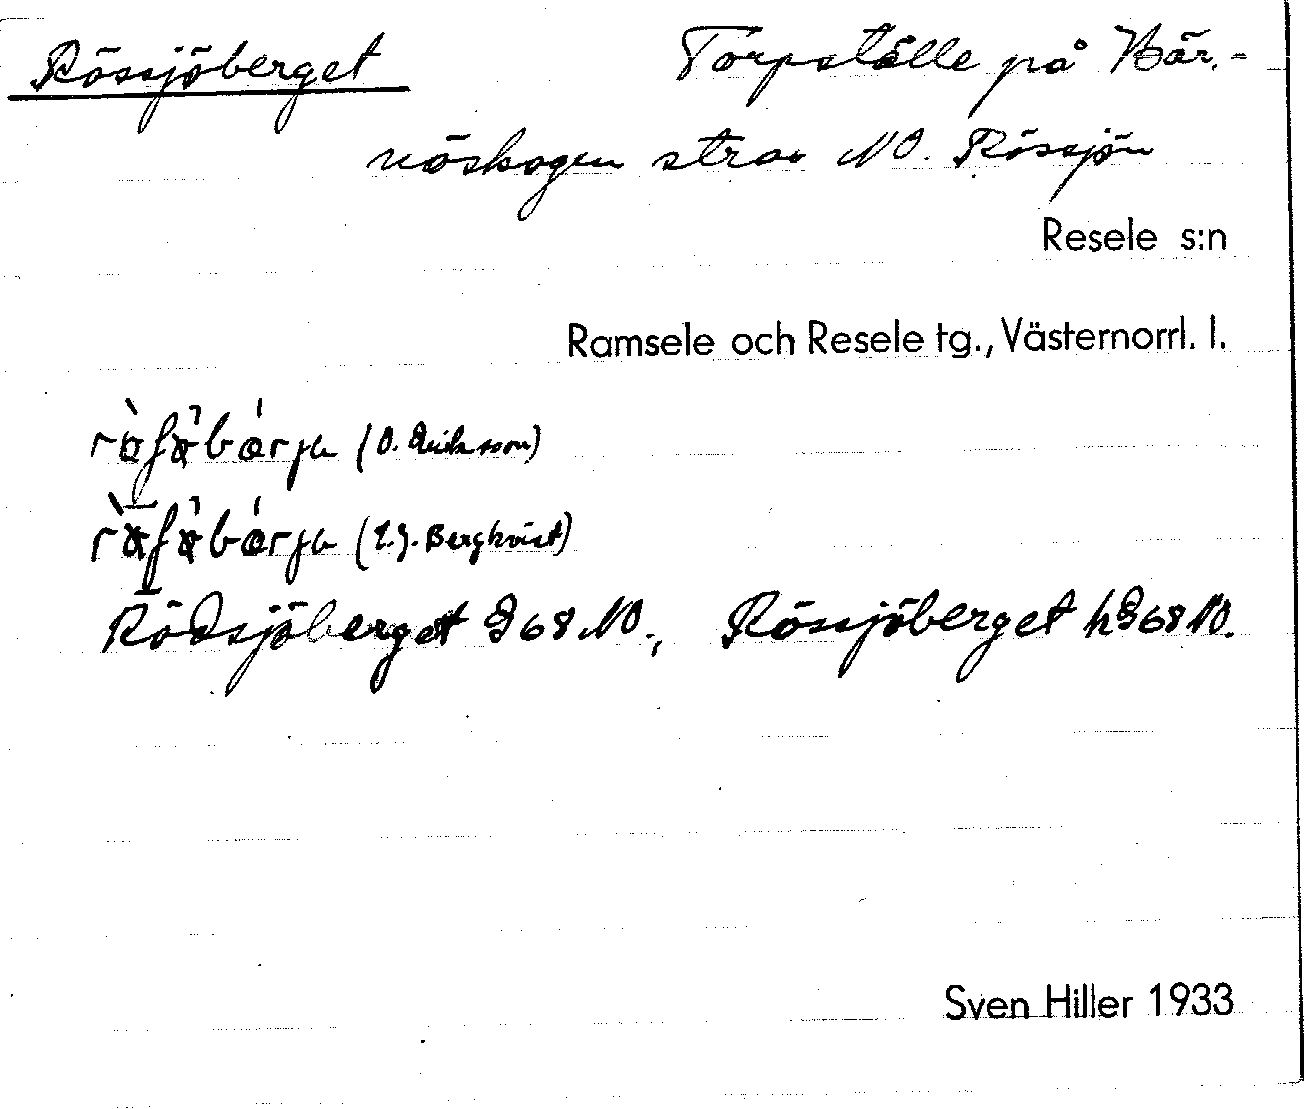 Rössjöberget Torpställe på Här-
nöskogen strax NO. Rössjön
Resele s:n
Ramsele och Resele tg., Västernorrl. l.
(O. Eriksson)
(E.J. Bergkvist)
Rödsjöberget G 68 NO., Rössjöberget h G 68 NO.
Sven Hiller 1933